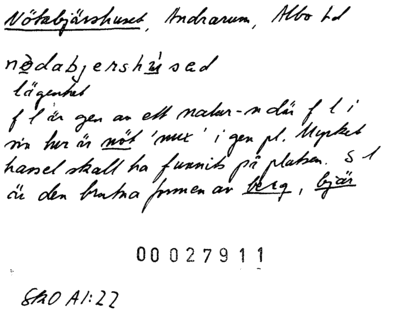 Nötabjärshuset, Andrarum, Albo hd
nødabjershúsed
lägenhet
f l är gen av ett natur-n där f l i
sin tur är nöt 'nux' i gen pl. Mycket
hassel skall ha funnits på platsen. S l
är den brutna formen av berg, bjär
00027911
SkO A1:22